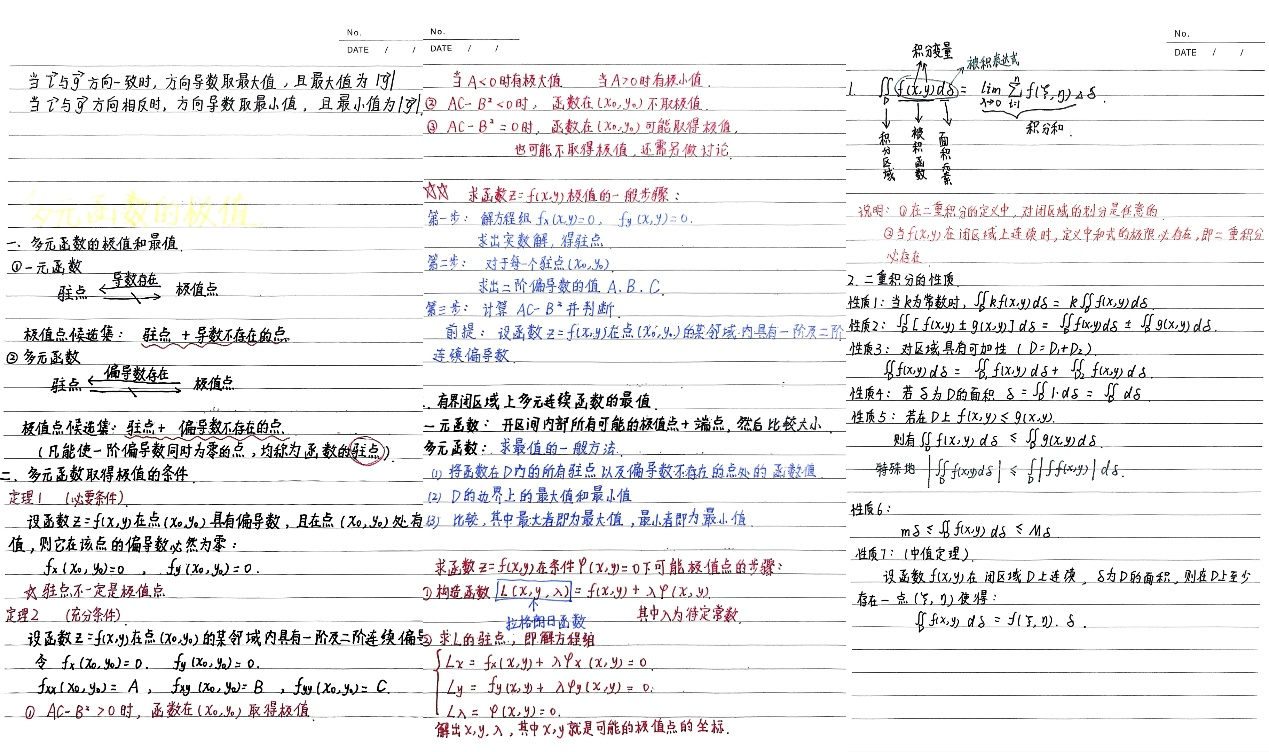 No.
DATE / /
当 l⃗ 与 g⃗ 方向一致时, 方向导数取最大值, 且最大值为 |g⃗|
当 l⃗ 与 g⃗ 方向相反时, 方向导数取最小值, 且最小值为 |g⃗|
多元函数的极值
一. 多元函数的极值和最值.
① 一元函数
导数存在
驻点 极值点
极值点候选集: 驻点 + 导数不存在的点.
② 多元函数
偏导数存在
驻点 极值点
极值点候选集: 驻点 + 偏导数不存在的点.
(凡能使一阶偏导数同时为零的点, 均称为函数的驻点)
二. 多元函数取得极值的条件
定理1 (必要条件)
设函数 z=f(x,y) 在点 (x₀,y₀) 具有偏导数, 且在点 (x₀,y₀) 处有
值, 则它在该点的偏导数必然为零:
fx(x₀,y₀)=0 , fy(x₀,y₀)=0.
☆ 驻点不一定是极值点
定理2 (充分条件)
设函数 z=f(x,y) 在点 (x₀,y₀) 的某邻域内具有一阶及二阶连续偏导
令 fx(x₀,y₀)=0. fy(x₀,y₀)=0.
fxx(x₀,y₀)=A , fxy(x₀,y₀)=B , fyy(x₀,y₀)=C.
① AC-B²>0时, 函数在(x₀,y₀) 取得极值
No.
DATE / /
当A<0时有极大值 当A>0时有极小值.
② AC-B²<0时, 函数在(x₀,y₀)不取极值.
③ AC-B²=0时, 函数在(x₀,y₀)可能取得极值,
也可能不取得极值, 还需另做讨论.
☆☆ 求函数z=f(x,y)极值的一般步骤:
第一步: 解方程组 fx(x,y)=0, fy(x,y)=0.
求出实数解, 得驻点.
第二步: 对于每个驻点(x₀,y₀)
求出二阶偏导数的值 A. B. C.
第三步: 计算 AC-B² 并判断.
前提: 设函数 z=f(x,y)在点(x₀,y₀)的某邻域内具有一阶及二阶
连续偏导数
. 有界闭区域上多元连续函数的最值.
一元函数: 开区间内部所有可能的极值点+端点, 然后比较大小.
多元函数: 求最值的一般方法.
(1) 将函数在D内的所有驻点以及偏导数不存在的点处的函数值
(2) D的边界上的最大值和最小值
(3) 比较, 其中最大者即为最大值, 最小者即为最小值.
求函数z=f(x,y)在条件φ(x,y)=0下可能极值点的步骤:
① 构造函数 L(x,y,λ) = f(x,y)+λφ(x,y)
拉格朗日函数 其中λ为待定常数
② 求L的驻点, 即解方程组
Lx = fx(x,y)+λφx(x,y)=0
Ly = fy(x,y)+λφy(x,y)=0.
Lλ = φ(x,y)=0.
解出x,y,λ, 其中x,y就是可能的极值点的坐标.
No.
DATE / /
积分变量
被积表达式
1. ∬_D f(x,y)dδ = lim_{λ→0} Σ_{i=1}^n f(ξ,η)△δ.
积分和.
积分区域 被积函数 面积元素
说明: ①在二重积分的定义中, 对闭区域的划分是任意的
②当f(x,y)在闭区域上连续时, 定义中和式的极限必存在, 即二重积分
必存在
2. 二重积分的性质.
性质1: 当k为常数时, ∬_D kf(x,y)dδ = k∬_D f(x,y)dδ.
性质2: ∬_D [f(x,y)±g(x,y)]dδ = ∬_D f(x,y)dδ ± ∬_D g(x,y)dδ.
性质3: 对区域具有可加性 (D=D₁+D₂)
∬_D f(x,y)dδ = ∬_{D₁} f(x,y)dδ + ∬_{D₂} f(x,y)dδ.
性质4: 若δ为D的面积 δ=∬_D 1·dδ = ∬_D dδ
性质5: 若在D上 f(x,y)≤g(x,y).
则有 ∬_D f(x,y)dδ ≤ ∬_D g(x,y)dδ.
特殊地 |∬_D f(x,y)dδ| ≤ ∬_D |f(x,y)|dδ.
性质6:
mδ ≤ ∬_D f(x,y)dδ ≤ Mδ
性质7: (中值定理)
设函数f(x,y)在闭区域D上连续, δ为D的面积, 则在D上至少
存在一点(ξ,η)使得:
∬_D f(x,y)dδ = f(ξ,η)·δ.